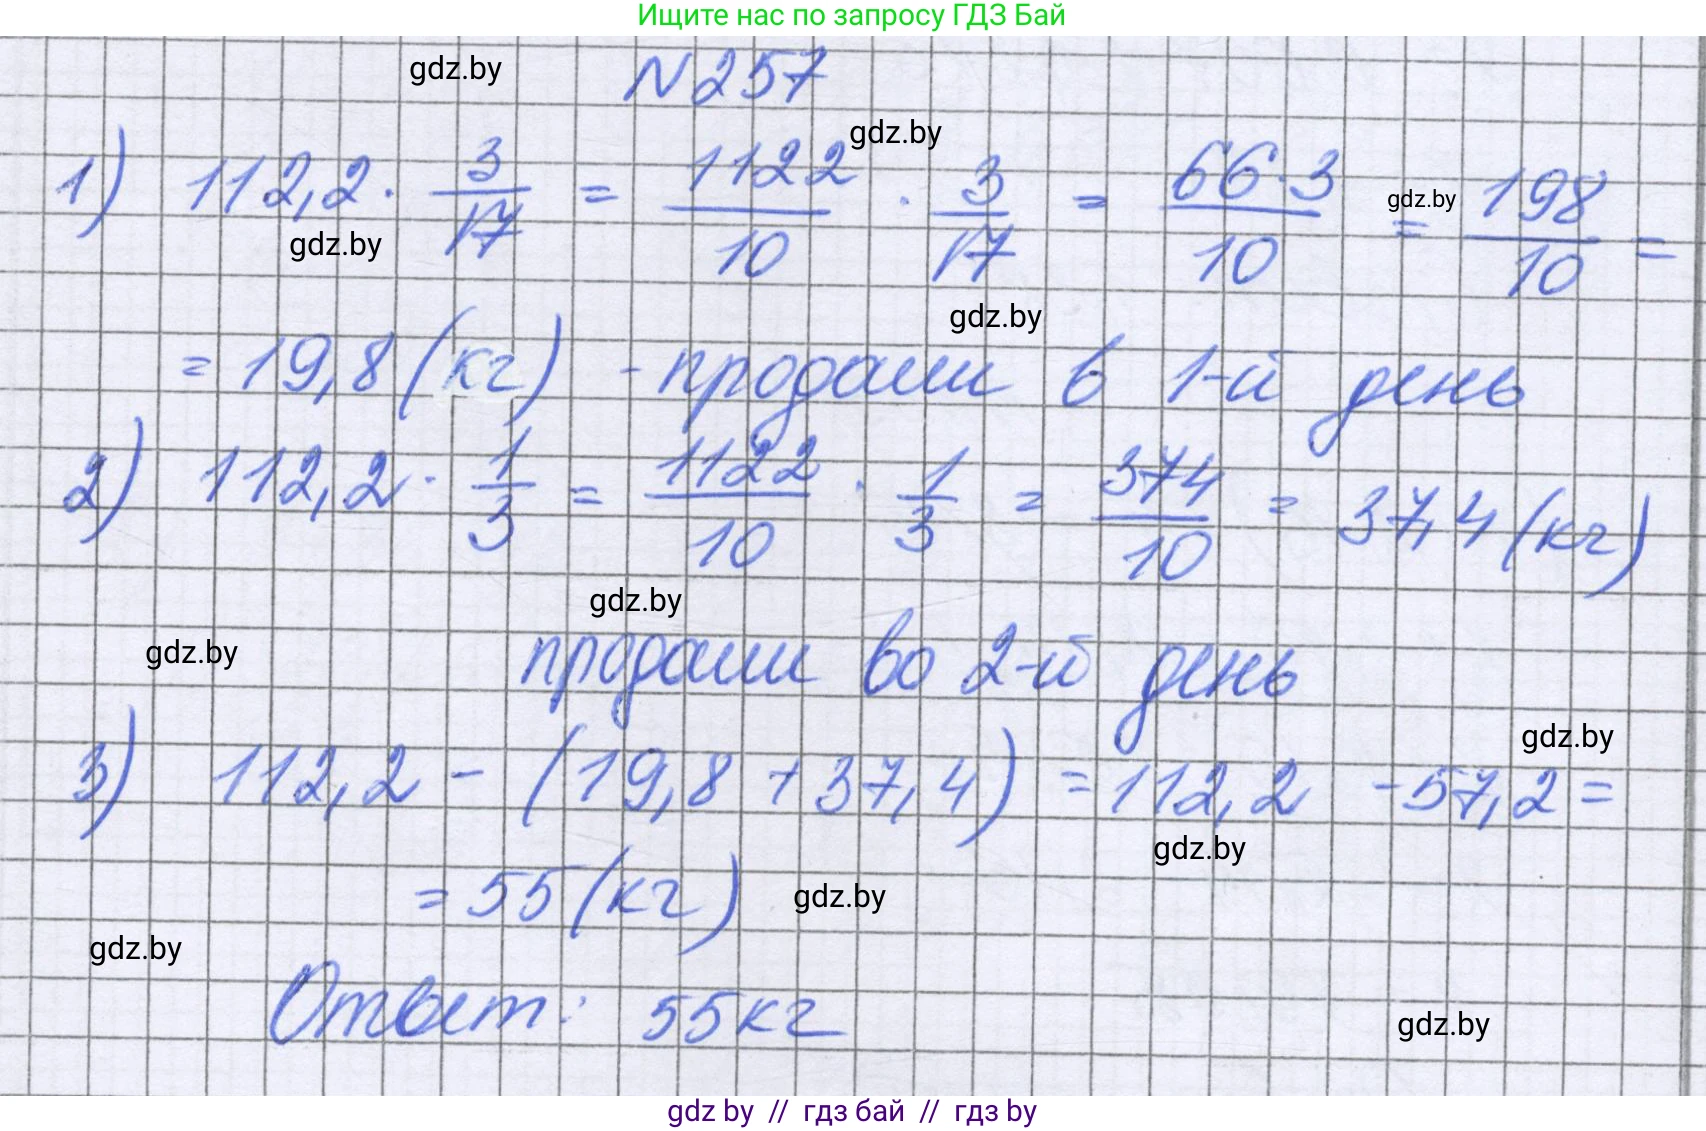 Ищите нас по запросу ГДЗ Бай
gdz.by
N 257
gdz.by
1) 112,2 · 3/17 = 1122/10 · 3/17 = 66·3/10 = 198/10 =
gdz.by
gdz.by
gdz.by
= 19,8 (кг) - продали в 1-й день
2) 112,2 · 1/3 = 1122/10 · 1/3 = 374/10 = 37,4 (кг)
gdz.by
продали во 2-й день
gdz.by
gdz.by
3) 112,2 - (19,8 + 37,4) = 112,2 - 57,2 =
gdz.by
= 55 (кг)
gdz.by
gdz.by
Ответ: 55 кг
gdz.by
gdz by // гдз бай // гдз by